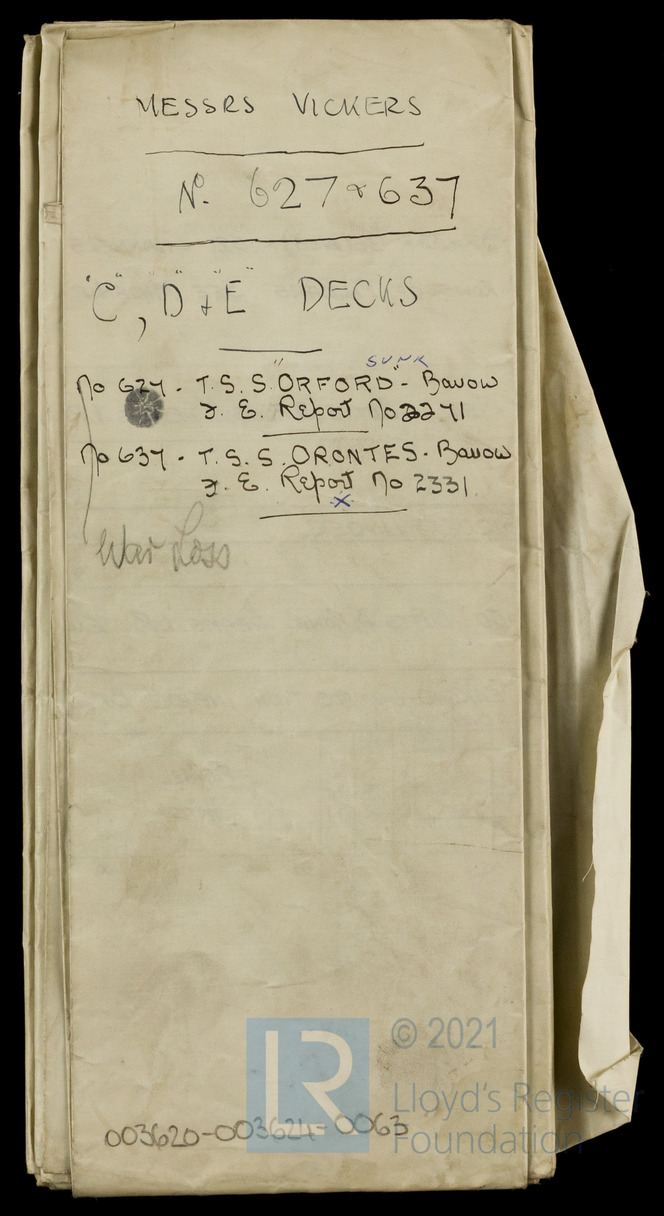 MESSRS VICKERS
No. 627 & 637
"C", "D" & "E" DECKS
SUNK
No 627 - T.S.S. "ORFORD" - Barrow
F.E. Report No 2271
No 637 - T.S.S. ORONTES - Barrow
F.E. Report No 2331
x
War Loss
LR
© 2021
Lloyd's Register
Foundation
003620-003624-0063